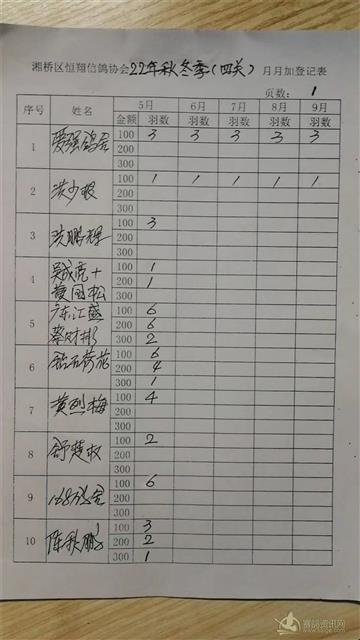 湘桥区恒翔信鸽协会22年秋冬季(四关)月月加登记表
页数: 1
序号 姓名 5月 6月 7月 8月 9月
金额 羽数 羽数 羽数 羽数 羽数
1 爱强鸽舍 100 3 3 3 3 3
200
300
2 洪少根 100 1 1 1 1 1
200
300
3 洪鹏程 100 3
200
300
4 吴成亮+ 100 1
黄国松 200 1
300
5 广东汇盛 100 6
蔡财彬 200 6
300 2
6 钻石荷花 100 6
200 4
300 1
7 黄烈梅 100 4
200
300
8 舒楚权 100 2
200
300
9 168鸽舍 100 6
200
300
10 陈秋鹏 100 3
200 2
300 1
赛鸽资讯网